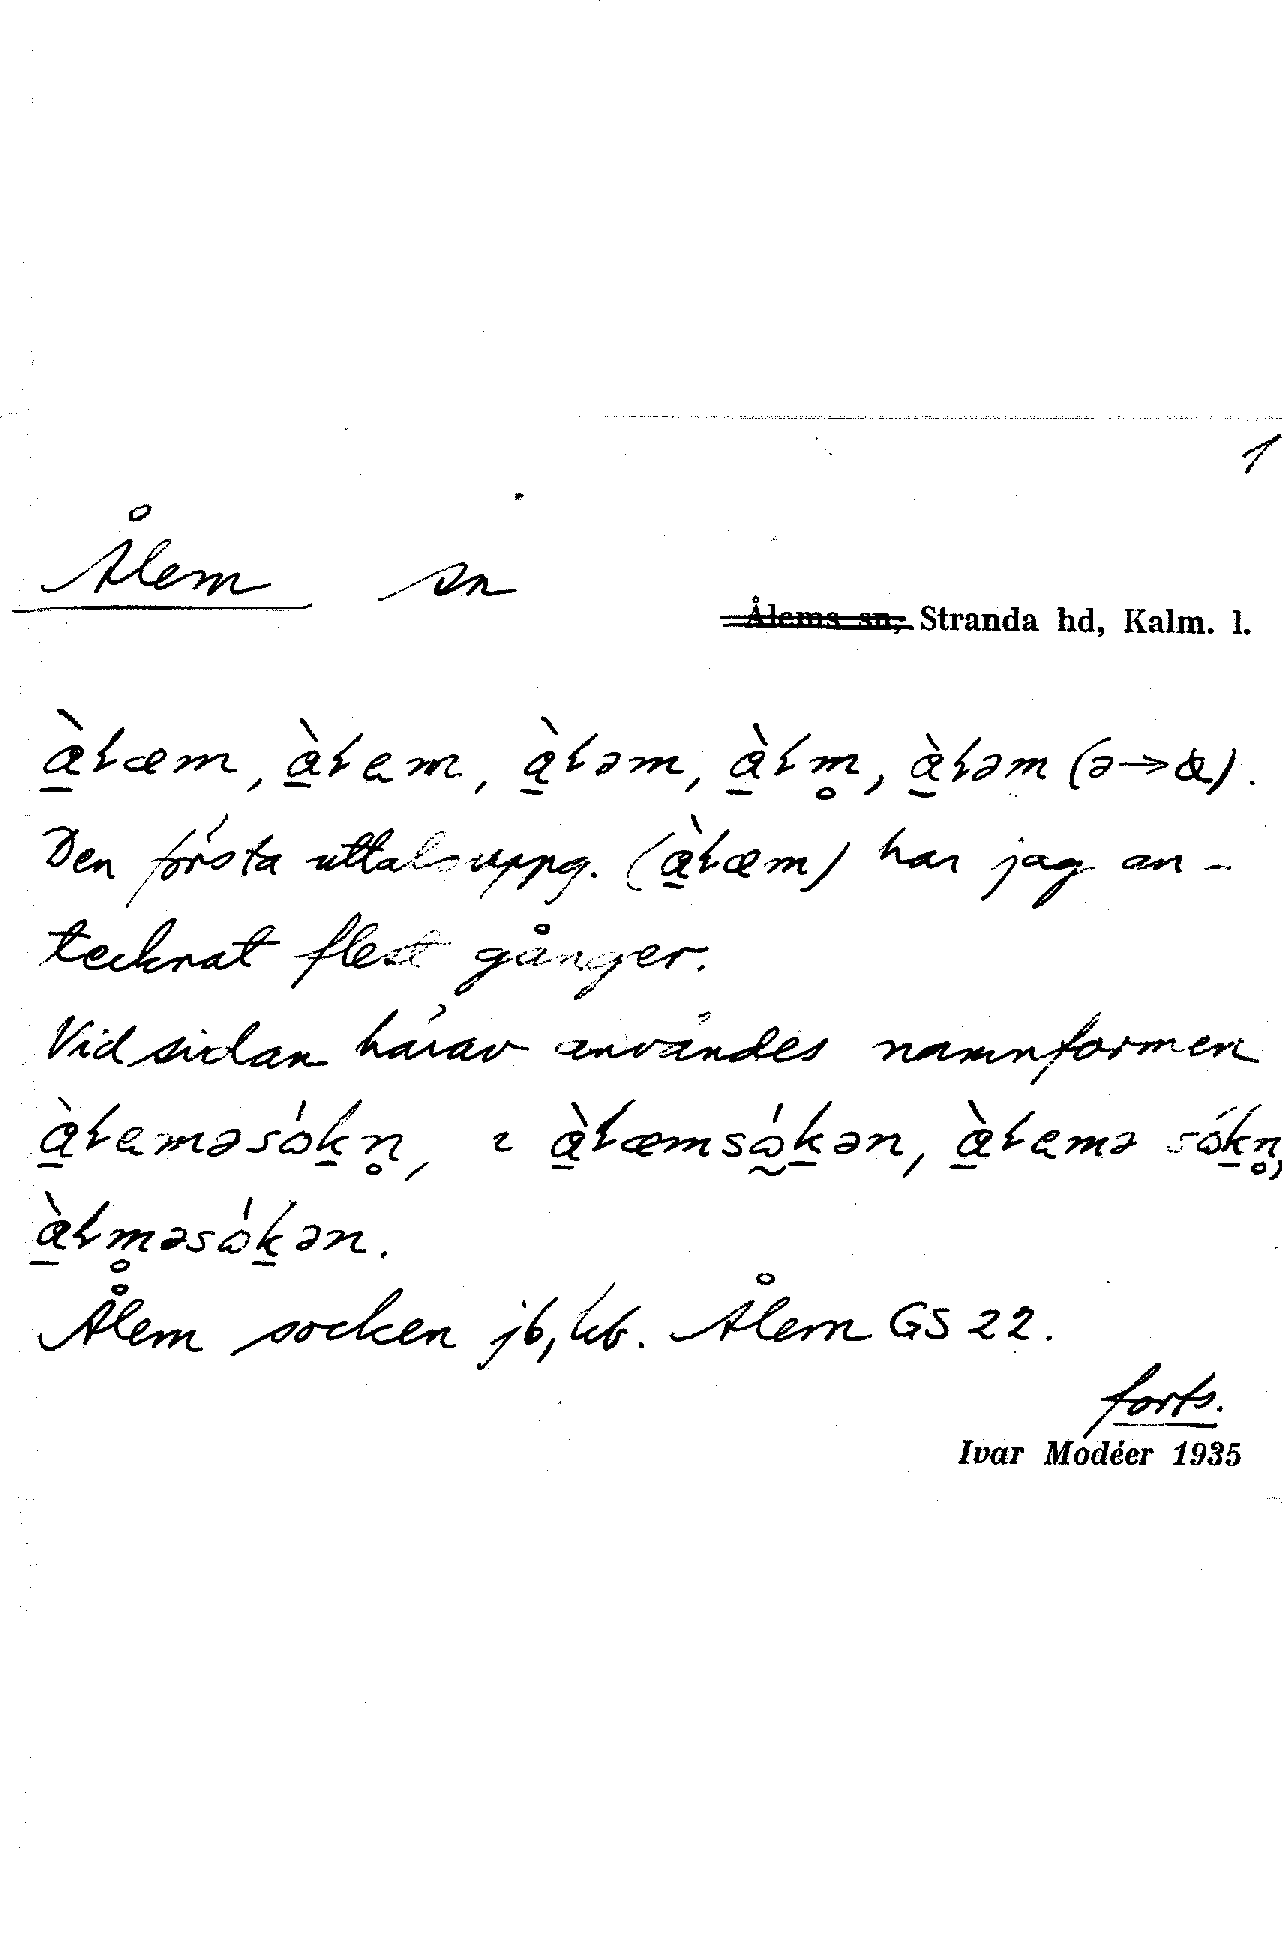 1
Ålem sn
Ålems sn, Stranda hd, Kalm. l.
à̱ɫæm, à̱ɫɐm, à̱ɫəm, à̱ɫm̥, à̱ɫəm (ə→æ).
Den första uttalsuppg. (à̱ɫæm) har jag an-
tecknat flest gånger.
Vid sidan härav användes namnformen
à̱ɫɐməsɷ́ḵn̥, à̱ɫæmsɷ́ḵən, à̱ɫɐmə sɷ́ḵn̥,
à̱ɫm̥əsɷ́ḵən.
Ålem socken jb, kb. Ålem GS 22.
forts.
Ivar Modéer 1935